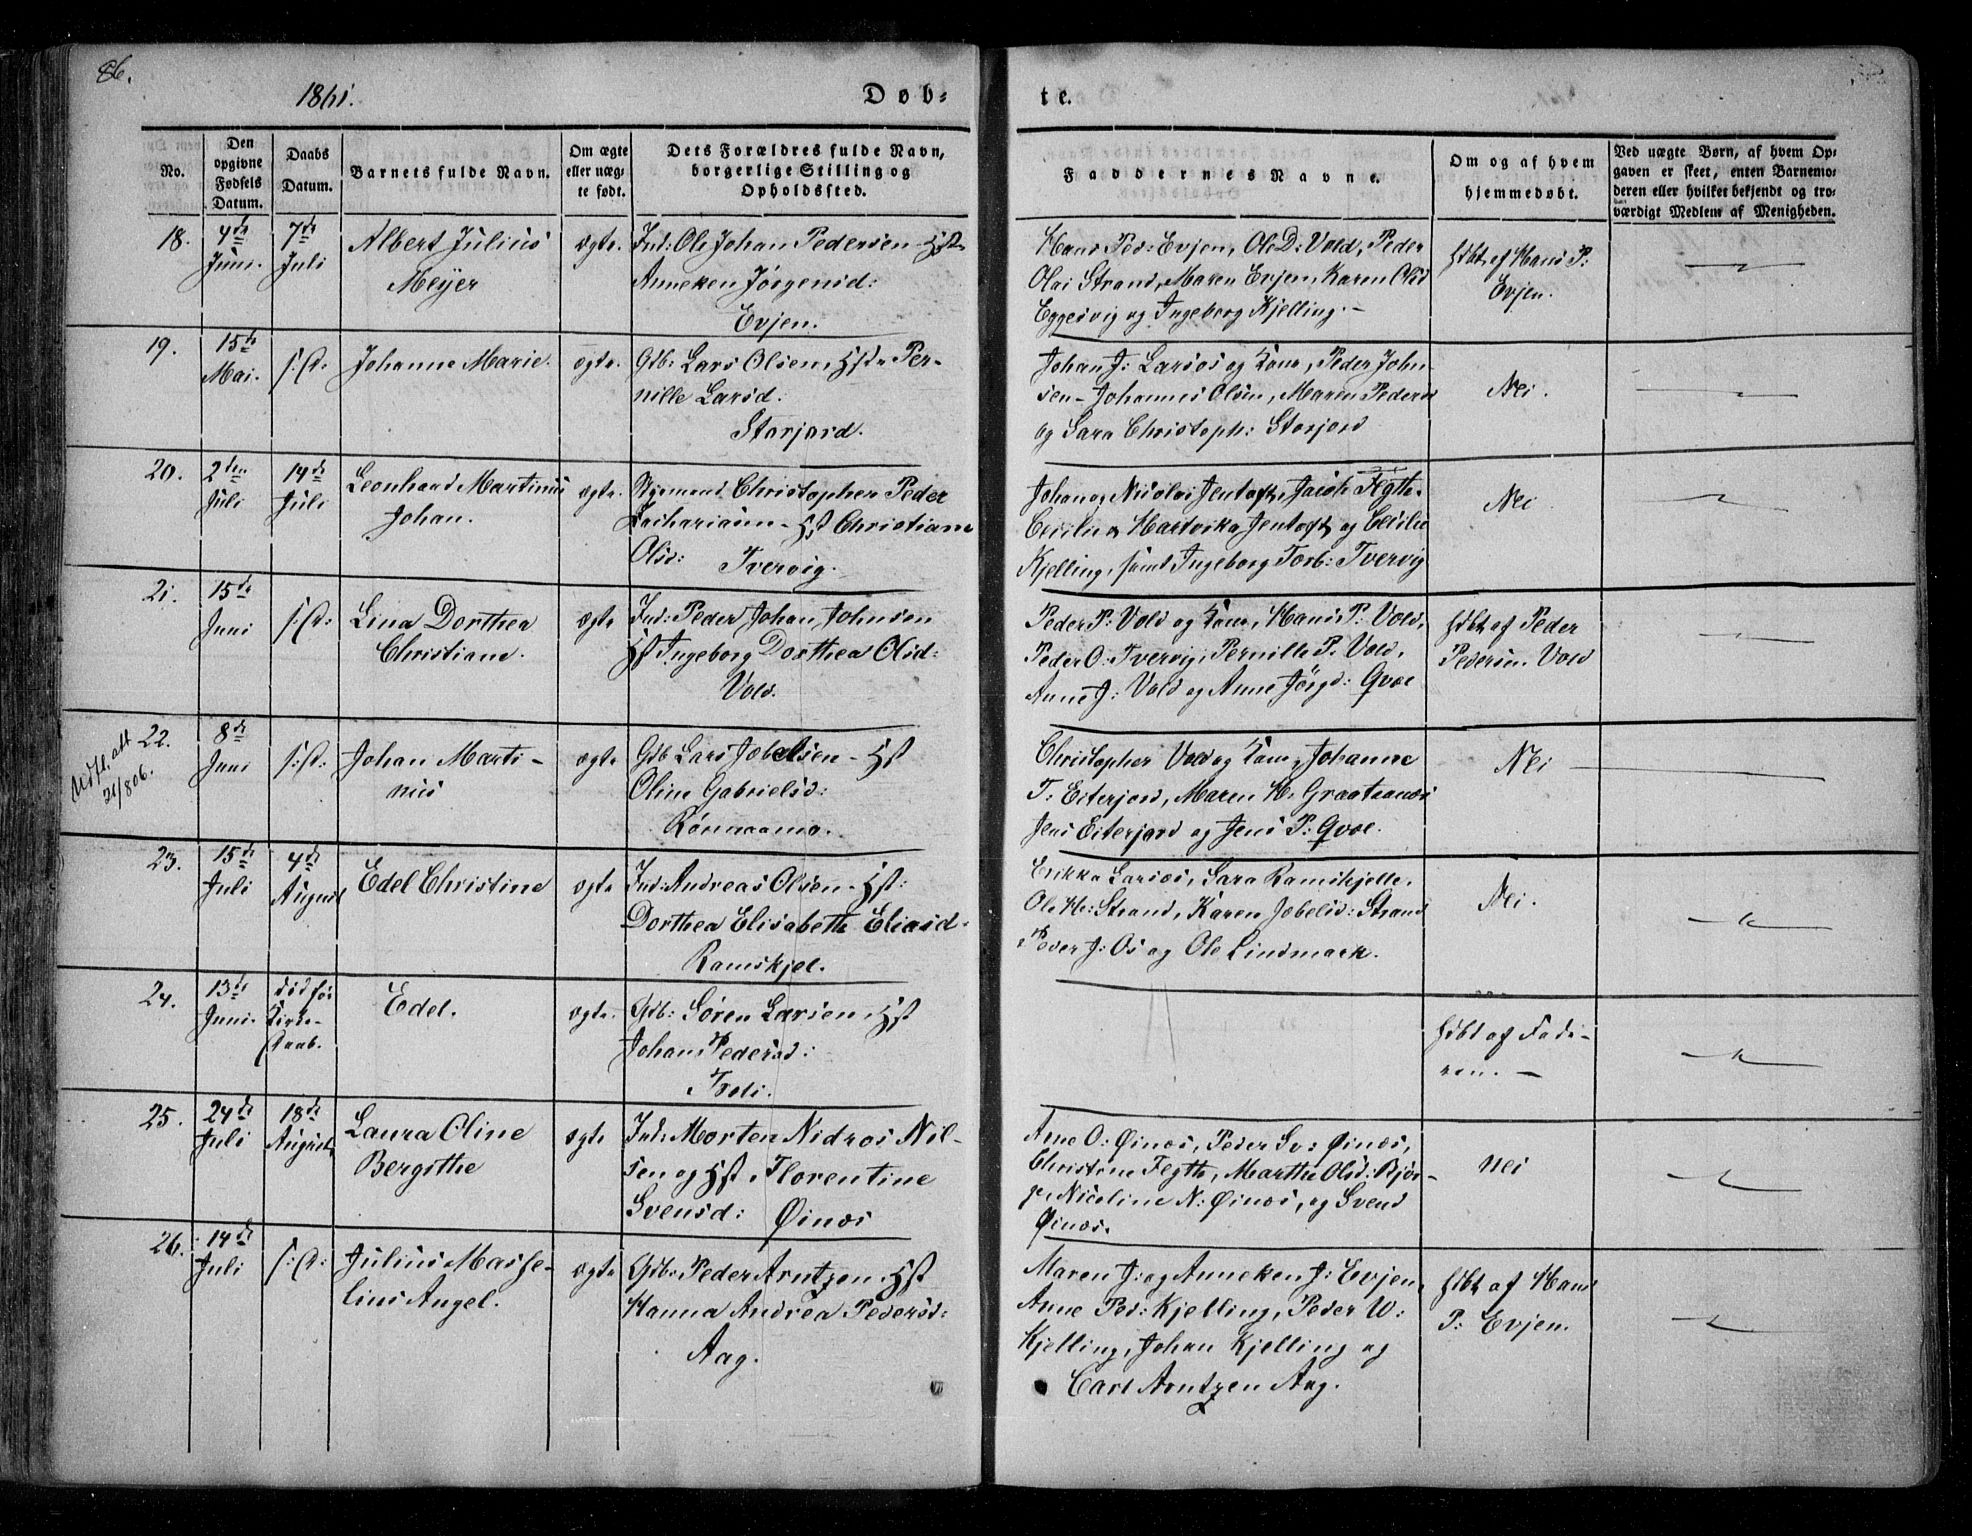 86.
1861.
Døb-
te.
No.
Den opgivne Fødsels Datum.
Daabs Datum.
Barnets fulde Navn.
Om ægte eller uægte født.
Dets Forældres fulde Navn, borgerlige Stilling og Opholdssted.
Faddernes Navne.
Om og af hvem hjemmedøbt.
Ved uægte Børn, af hvem Opgaven er skeet, enten Barnemoderen eller hvilket bekjendt og troværdigt Medlem af Menigheden.
18. 4de Juni. 7de Juli
Albert Julius
Meyer
ægte.
Ind: Ole Johan Pedersen - Hst
Anneken Jørgensd:
Evjen.
Hans Ped: Evjen, Ole D: Vold, Peder
Olai Strand, Maren Evjen, Karen Olsd
Eggesvig og Ingeborg Kjelling. -
hdbt af Hans P:
Evjen.
19. 15de Mai. s: D.
Johanne Marie.
ægte.
Gdb. Lars Olsen, Hst. Per-
nille Larsd.
Storjord.
Johan J: Larsos og Kone, Peder John
sen - Johannes Olsen, Maren Peders
og Sara Christoph: Storjord
Nei.
20. 2den Juli 14de Juli
Leonhard Martinus
Johan.
ægte.
Christopher Peder
Zachariasen - Hst Christiane
Olsd: Tvervig.
Johan og Nicolai Jentoft, Jacob Flygth.
Hartvika Jentoft og Cecilie
Kjelling, samt Ingeborg Torb: Tvervig
Nei
21. 15de Juni s: D:
Lina Dorthea
Christiane.
ægte
Ind: Peder Johan Johnsen
Hst Ingeborg Dorthea Olsd:
Vold.
Peder P: Vold og Kone, Hans P: Vold,
Peder O: Tvervig, Pernille P. Vold,
Anne J: Vold og Anne Jørgd: Qvæ
hdbt af Peder
Pedersen Vold
22. 8de Juni s: D:
21/806.
Johan Marti-
nus
ægte
Gdb Lars Jobelsen - Hst
Oline Gabrielsd:
Christopher Vold og Kone, Johanne
T: Eiterjord, Maren H.
Jens Eiterjord og Jens P: Qvæ.
Nei
23. 15de Juli 4de August
Edel Christine
ægte
Ind: Andreas Olsen - Hst:
Dorthea Elisabeth Eliasd.
Ramskjel.
Erikka Larsos, Sara Ramskjell.
Ole H: Strand, Karen Jobelsd: Strand
Peder J: Os og Ole Lindmark.
Nei.
24. 13de Juni. død før Kirke-daab.
Edel.
ægte.
Gdb: Søren Larsen, Hst
Johan Pedersd:
hdbt af Fade-
ren. -
25. 24de Juli 18de August
Laura Oline
Bergithe
ægte
Ind: Morten Nidros Nil-
sen og Hst Florentine
Svensd: Øinæs
Arne O: Øinæs, Peder Sv: Øinæs,
Christine Flygth, Marthe Olsd: Bjør-
Nicoline N: Øinæs, og Svend
Øinæs.
Nei
26. 14de Juli s: D:
Julius Masse-
lius Angel.
ægte
Gdb: Peder Arntzen, Hst
Hanna Andrea Pedersd:
Aag.
Maren J: og Anneken J: Evjen,
Anne Ped: Kjelling, Peder W:
Kjelling, Johan Kjelling og
Carl Arntzen Aag.
hdbt af Hans
P: Evjen.